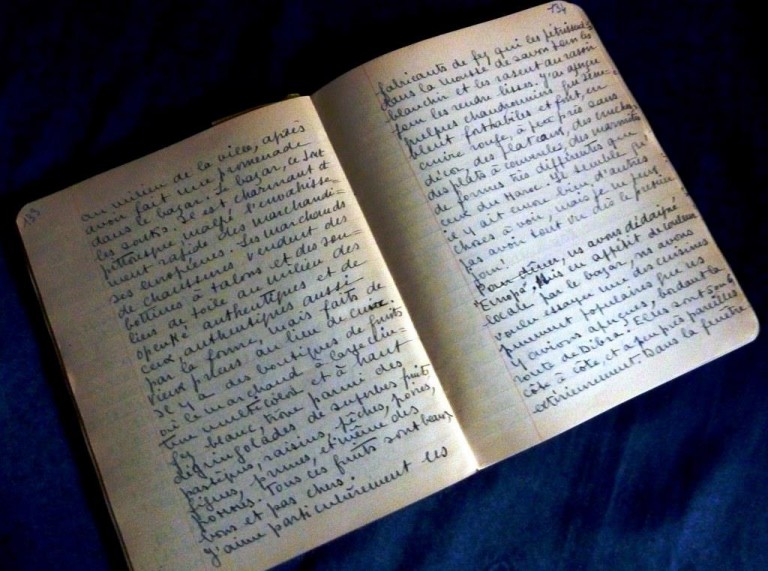 133
au milieu de la ville, après
avoir fait une promenade
dans le bazar. Le bazar, ce sont
les souks. Il est charmant et
pittoresque malgré l'envahisse-
ment rapide des marchandi-
ses européennes. Les marchands
de chaussures vendent des
bottines à talons et des sou-
liers de toile au milieu des
openké authentiques et de
ceux, authentiques aussi
par la forme, mais faits de
vieux pneus au lieu de cuir.
Il y a des boutiques de fruits
où le marchand à large cein-
ture multicolore et à haut
fez blanc, trône parmi des
dégringolades de superbes fruits,
pastèques, raisins, pêches, poires,
figues, prunes, et même des
pommes. Tous ces fruits sont beaux,
bons et pas chers.
J'aime particulièrement les
134
fabricants de fez qui les pétrissent
dans la mousse de savon pour les
blanchir et les rasent au rasoir
pour les rendre lisses. J'ai aperçu
quelques chaudronniers qui sem-
blent forthabiles et font, en
cuivre rouge, à peu près sans
décor, des plateaux, des cruches,
des plats à couvercles, des marmites
de formes très différentes que
ceux du Maroc. Il semble qu'
il y ait encore bien d'autres
choses à voir, mais je ne peux
pas avoir tout vu dès le premier
jour.
Pour dîner, ns avons dédaigné
"Europa". Mis en appétit de couleur
locale par le bazar, ns avons
voulu essayer une des cuisines
purement populaires que ns
y avions aperçues, bordant la
route de Dibra. Elles sont
côte à côte et à peu près pareilles
extérieurement. Dans la fenêtre